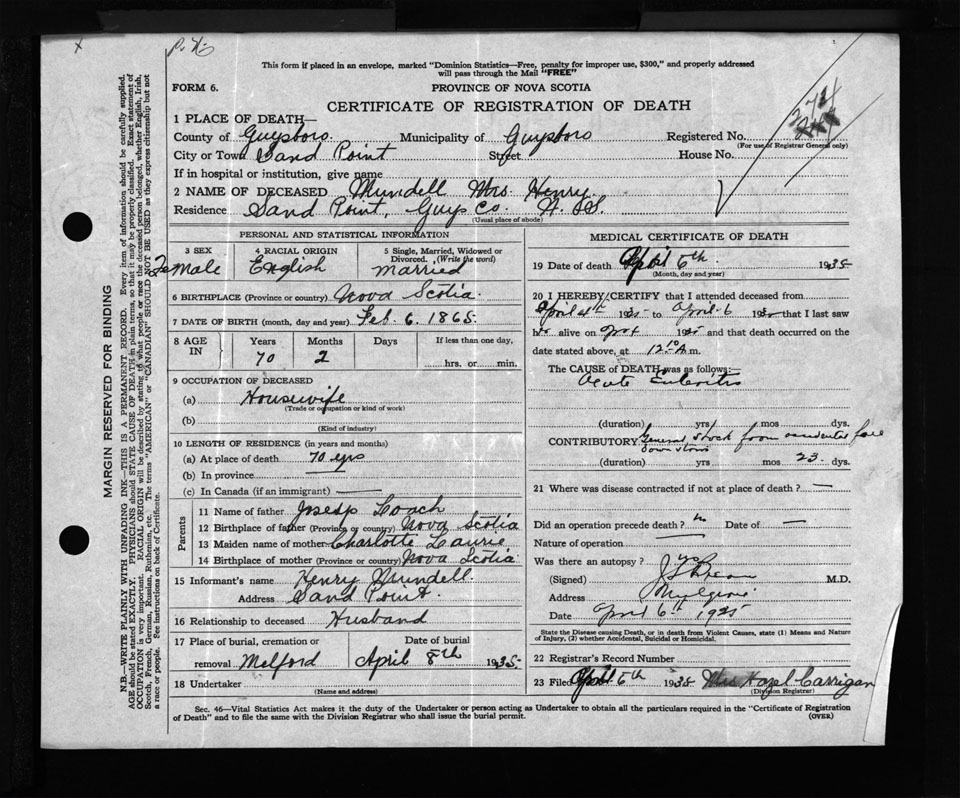 This form if placed in an envelope, marked "Dominion Statistics—Free, penalty for improper use, $300," and properly addressed
will pass through the Mail "FREE"
FORM 6.
PROVINCE OF NOVA SCOTIA
CERTIFICATE OF REGISTRATION OF DEATH
274
1 PLACE OF DEATH—
County of Guysboro. Municipality of Guysboro Registered No.
(For use of Registrar General only)
City or Town Sand Point Street House No.
If in hospital or institution, give name
2 NAME OF DECEASED Mundell Mrs. Henry.
Residence Sand Point, Guys Co. N. S.
(Usual place of abode)
PERSONAL AND STATISTICAL INFORMATION
3 SEX 4 RACIAL ORIGIN 5 Single, Married, Widowed or
Divorced. (Write the word)
Female English married
6 BIRTHPLACE (Province or country) Nova Scotia.
7 DATE OF BIRTH (month, day and year) Feb. 6. 1865.
8 AGE IN Years Months Days If less than one day,
70 2 hrs. or min.
9 OCCUPATION OF DECEASED
(a) Housewife
(Trade or occupation or kind of work)
(b)
(Kind of industry)
10 LENGTH OF RESIDENCE (in years and months)
(a) At place of death 70 yrs
(b) In province
(c) In Canada (if an immigrant)
Parents
11 Name of father Josesp Loach
12 Birthplace of father (Province or country) Nova Scotia
13 Maiden name of mother Charlotte Laurie
14 Birthplace of mother (Province or country) Nova Scotia
15 Informant's name Henry Mundell.
Address Sand Point.
16 Relationship to deceased Husband
17 Place of burial, cremation or Date of burial
removal Melford April 8th 1935.
18 Undertaker
(Name and address)
MEDICAL CERTIFICATE OF DEATH
19 Date of death April 6th 1935
(Month, day and year)
20 I HEREBY CERTIFY that I attended deceased from
April 4th 193 to April 6 193 that I last saw
h alive on 193 and that death occurred on
date stated above, at 12 10 A m.
The CAUSE of DEATH was as follows:—
Acute Enteritis
(duration) yrs mos dys.
CONTRIBUTORY General shock from accidental fall
down stairs
(duration) yrs mos 23 dys.
21 Where was disease contracted if not at place of death? —
Did an operation precede death? no Date of —
Nature of operation
Was there an autopsy? no
(Signed) M.D.
Address Mulgrave
Date April 6th 1935
State the Disease causing Death, or in death from Violent Causes, state (1) Means and Nature
of Injury, (2) whether Accidental, Suicidal or Homicidal.
22 Registrar's Record Number
23 Filed April 6th 1935 Mrs Hazel Carrigan
(Division Registrar)
Sec. 46—Vital Statistics Act makes it the duty of the Undertaker or person acting as Undertaker to obtain all the particulars required in the "Certificate of Registration
of Death" and to file the same with the Division Registrar who shall issue the burial permit.
(OVER)
MARGIN RESERVED FOR BINDING
N.B.—WRITE PLAINLY WITH UNFADING INK—THIS IS A PERMANENT RECORD. Every item of information should be carefully supplied.
AGE should be stated EXACTLY. PHYSICIANS should STATE CAUSE OF DEATH in plain terms, so that it may be properly classified. Exact statement of
OCCUPATION is very important. RACIAL ORIGIN will be described by stating to what people or race the deceased person belonged, whether English, Irish,
Scotch, French, German, Russian, Ruthenian, etc. The terms "AMERICAN" or "CANADIAN" SHOULD NOT BE USED as they express citizenship but not
a race or people. See instructions on back of Certificate.